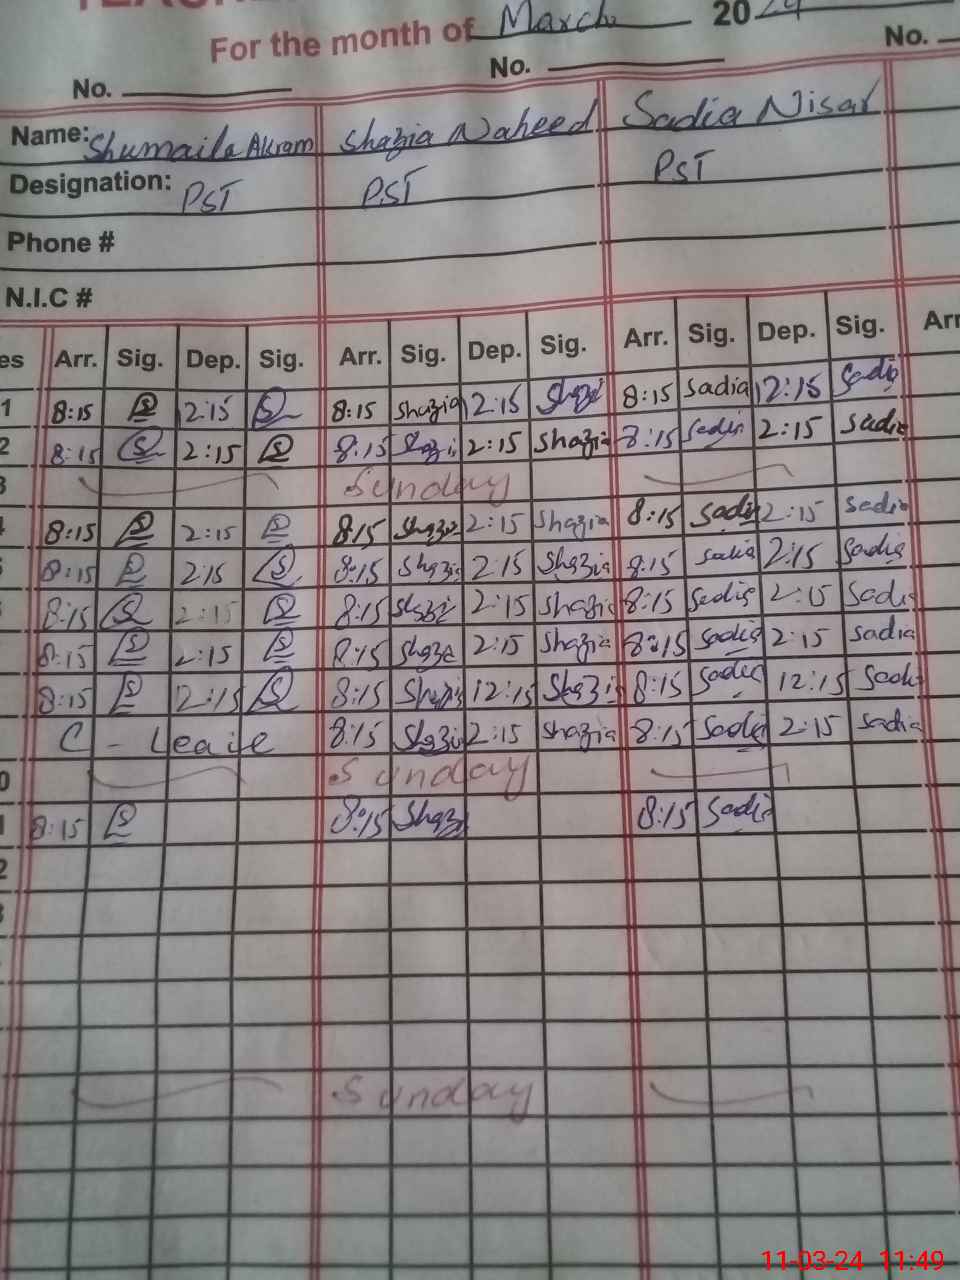 For the month of March 2024
No. No. No.
Name: Shumaila Akram Shazia Naheed Sadia Nisar
Designation: PST PST PST
Phone #
N.I.C #
es Arr. Sig. Dep. Sig. Arr. Sig. Dep. Sig. Arr. Sig. Dep. Sig. Arr
1 8:15 S 12:15 S 8:15 Shazia 12:15 Shazi 8:15 Sadia 12:15 Sadia
2 8:15 S 2:15 S 8:15 Shazi 2:15 Shazia 8:15 Sadia 2:15 Sadia
3 Sunday
8:15 S 2:15 S 8:15 Shazia 2:15 Shazia 8:15 Sadia 2:15 Sadia
8:15 S 2:15 S 8:15 Shazia 2:15 Shazia 8:15 Sadia 2:15 Sadia
8:15 S 2:15 S 8:15 Shazi 2:15 Shazia 8:15 Sadia 2:15 Sadia
8:15 S 2:15 S 8:15 Shaza 2:15 Shazia 8:15 Sadia 2:15 Sadia
8:15 S 12:15 S 8:15 Shazia 12:15 Shazia 8:15 Sadia 12:15 Sadi
C - Leave 8:15 Shazia 2:15 Shazia 8:15 Sadia 2:15 Sadia
0 Sunday
1 8:15 S 8:15 Shazi 8:15 Sadia
2
3
Sunday
11-03-24 11:49